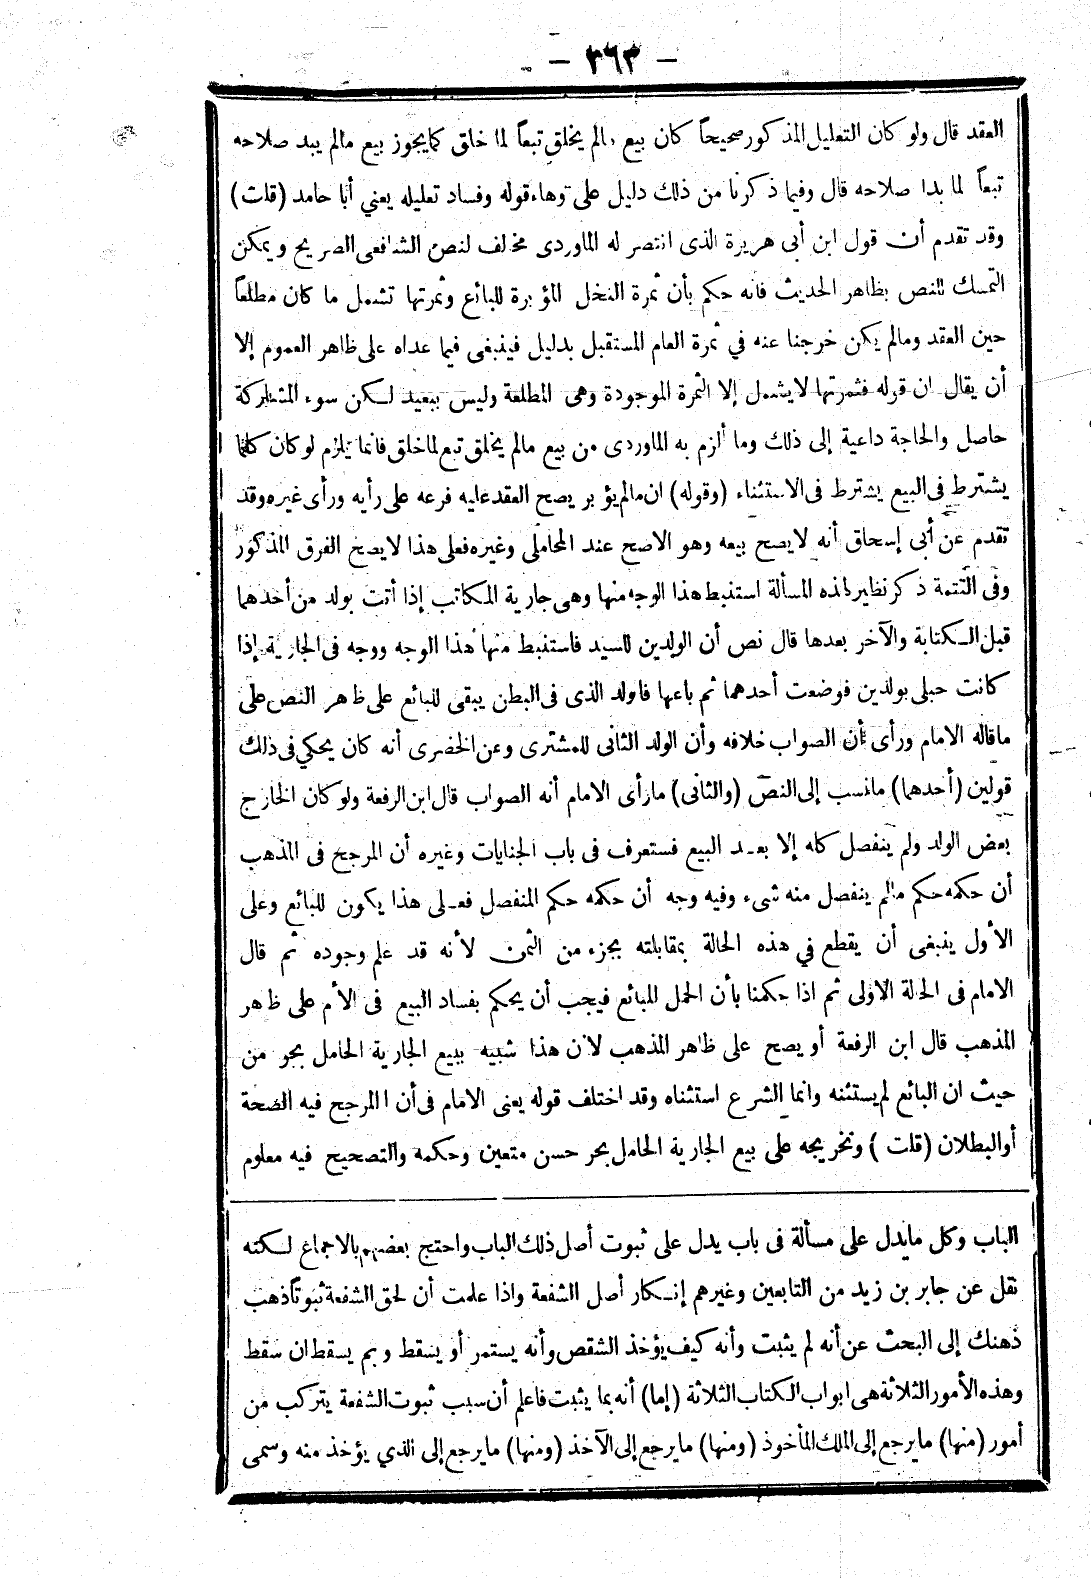 — ٣٦٣ —
العقد قال ولو كان التعليل المذكور صحيحاً كان بيع مالم يخلق تبعاً لما خلق كما يجوز بيع مالم يبد صلاحه
تبعاً لما بدا صلاحه قال وفيما ذكرنا من ذلك دليل على وهاء قوله وفساد تعليله يعني أبا حامد (قلت)
وقد تقدم أن قول ابن أبى هريرة الذى انتصر له الماوردى مخالف لنص الشافعى الصريح ويمكن
التمسك للنص بظاهر الحديث فانه حكم بأن ثمرة النخل المؤبرة للبائع وثمرتها تشمل ما كان مطلعاً
حين العقد ومالم يكن خرجنا عنه في ثمرة العام المستقبل بدليل فينبغى فيما عداه على ظاهر العموم إلا
أن يقال ان قوله فثمرتها لا يشمل إلا الثمرة الموجودة وهى المطلعة وليس ببعيد لكن سوء المشاركة
حاصل والحاجة داعية إلى ذلك وما ألزم به الماوردى من بيع مالم يخلق تبع لما خلق فانما يلزم لو كان كلما
يشترط فى البيع يشترط فى الاستثناء (وقوله) ان مالم يؤبر يصح العقد عليه فرعه على رأيه ورأى غيره وقد
تقدم عن أبى إسحاق أنه لا يصح بيعه وهو الاصح عند المحاملى وغيره فعلى هذا لا يصح الفرق المذكور
وفى التتمة ذكر نظير لهذه المسألة استنبط هذا الوجه منها وهى جارية المكاتب إذا أتت بولد من أحدهما
قبل الكتابة والآخر بعدها قال نص أن الولدين للسيد فاستنبط منها هذا الوجه ووجه فى الجارية إذا
كانت حبلى بولدين فوضعت أحدهما ثم باعها فالولد الذى فى البطن يبقى للبائع على ظاهر النص على
ماقاله الامام ورأى أن الصواب خلافه وأن الولد الثانى للمشترى وعن الخضرى أنه كان يحكي فى ذلك
قولين (أحدهما) مانسب إلى النص (والثانى) مارأى الامام أنه الصواب قال ابن الرفعة ولو كان الخارج
بعض الولد ولم ينفصل كله إلا بعد البيع فستعرف فى باب الجنايات وغيره أن المرجح فى المذهب
أن حكمه حكم مالم ينفصل منه شىء وفيه وجه أن حكمه حكم المنفصل فعلى هذا يكون للبائع وعلى
الأول ينبغى أن يقطع في هذه الحالة بمقابلته بجزء من الثمن لأنه قد علم وجوده ثم قال
الامام فى الحالة الاولى ثم اذا حكمنا بأن الحمل للبائع فيجب أن يحكم بفساد البيع فى الأم على ظاهر
المذهب قال ابن الرفعة أو يصح على ظاهر المذهب لان هذا شبيه ببيع الجارية الحامل بحر من
حيث ان البائع لم يستثنه وانما الشرع استثناه وقد اختلف قوله يعنى الامام فى أن المرجح فيه الصحة
أو البطلان (قلت) وتخريجه على بيع الجارية الحامل بحر حسن متعين وحكمه والتصحيح فيه معلوم
الباب وكل مايدل على مسألة فى باب يدل على ثبوت أصل ذلك الباب واحتج بعضهم بالاجماع لكنه
نقل عن جابر بن زيد من التابعين وغيرهم إنكار أصل الشفعة واذا علمت أن لحق الشفعة ثبوتاً ذهب
ذهنك إلى البحث عن أنه لم يثبت وأنه كيف يؤخذ الشقص وأنه يستمر أو يسقط وبم يسقط ان سقط
وهذه الأمور الثلاثة هى ابواب الكتاب الثلاثة (إما) أنه بما يثبت فاعلم أن سبب ثبوت الشفعة يتركب من
أمور (منها) ما يرجع إلى الملك المأخوذ (ومنها) ما يرجع إلى الآخذ (ومنها) ما يرجع إلى الذي يؤخذ منه وسمى